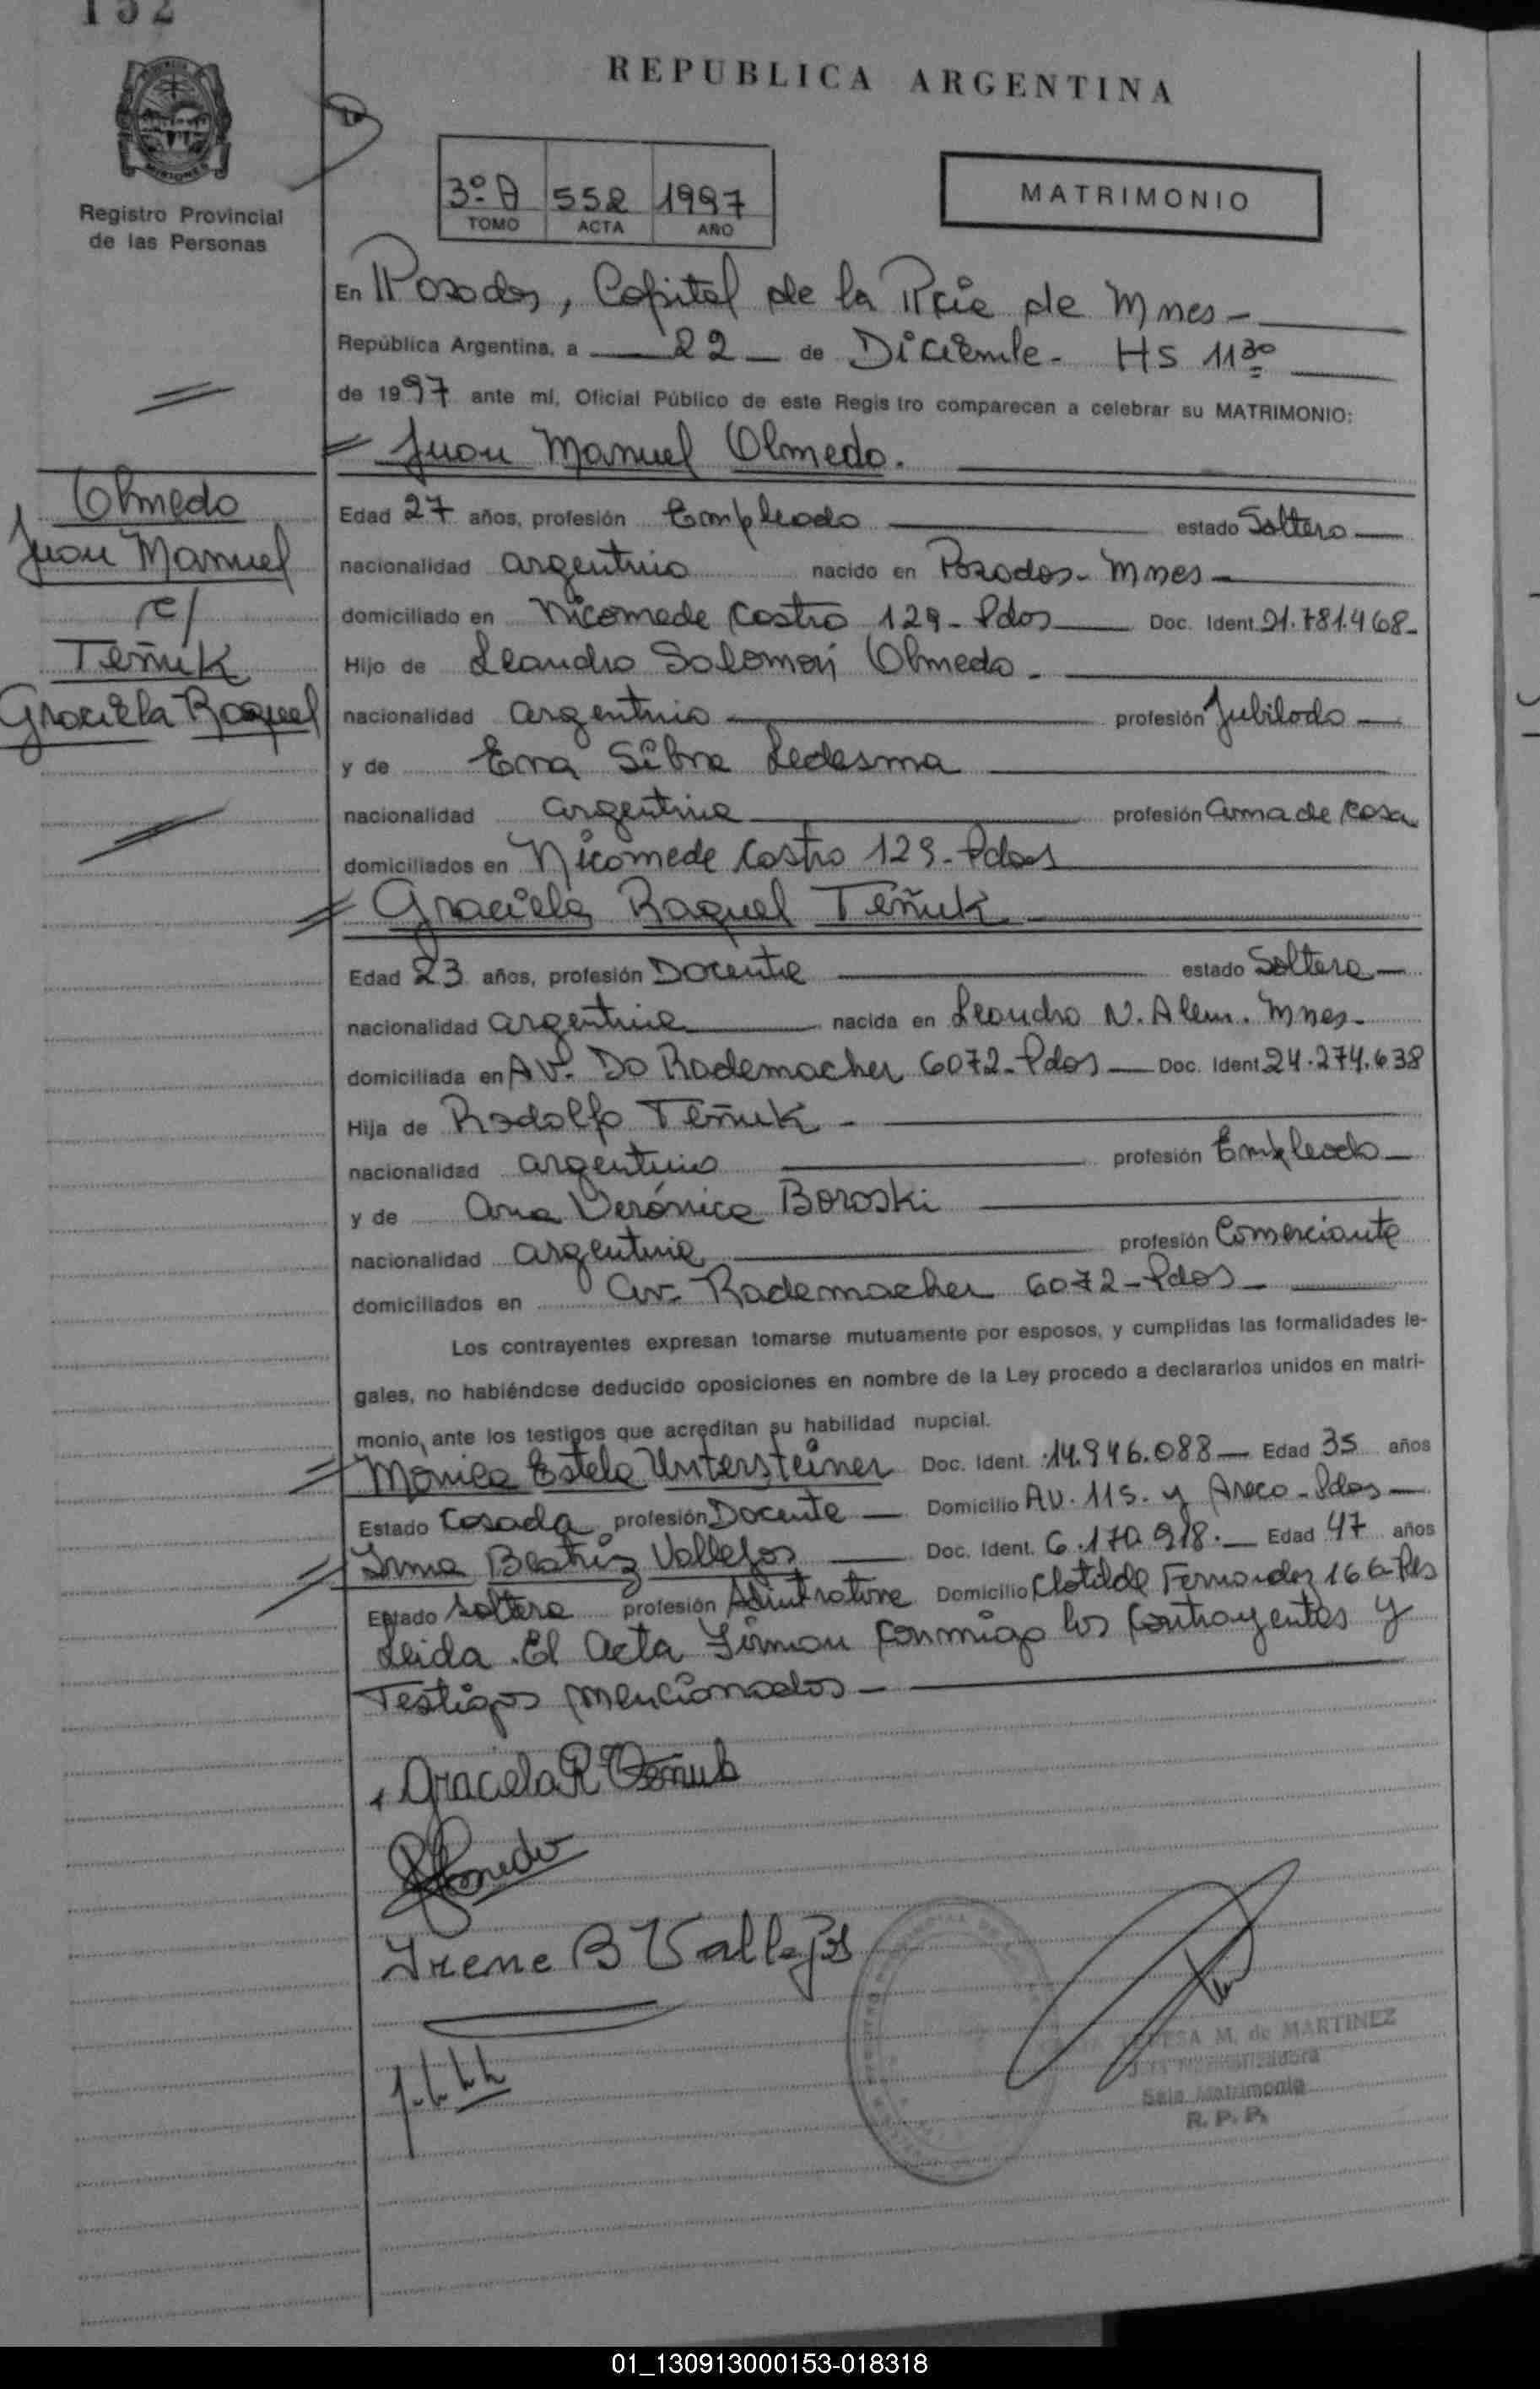 152
REPUBLICA ARGENTINA
Registro Provincial
de las Personas
3º A 552 1997
TOMO ACTA AÑO
MATRIMONIO
En Posadas, Capital de la Pcia de Mnes -
República Argentina, a 22 de Diciembre - HS 11 30
de 1997 ante mí, Oficial Público de este Registro comparecen a celebrar su MATRIMONIO:
Juan Manuel Olmedo.
Olmedo
Juan Manuel
c/
Teñuk
Graciela Raquel
Edad 27 años, profesión Empleado estado Soltero
nacionalidad argentino nacido en Posadas - Mnes -
domiciliado en Nicomede Castro 129 - Pdas Doc. Ident. 21.781.468-
Hijo de Leandro Salomón Olmedo -
nacionalidad argentino profesión Jubilado
y de Ledesma
nacionalidad argentina profesión ama de casa
domiciliados en Nicomede Castro 129 - Pdas
Graciela Raquel Teñuk
Edad 23 años, profesión Docente estado Soltera
nacionalidad argentina nacida en Leandro N. Alem. Mnes -
domiciliada en AV. Rademacher 6072 - Pdas Doc. Ident. 24.274.638
Hija de Rodolfo Teñuk -
nacionalidad argentino profesión Empleado
y de Ana Verónica Boroski
nacionalidad argentina profesión Comerciante
domiciliados en av. Rademacher 6072 - Pdas -
Los contrayentes expresan tomarse mutuamente por esposos, y cumplidas las formalidades le-
gales, no habiéndose deducido oposiciones en nombre de la Ley procedo a declararlos unidos en matri-
monio, ante los testigos que acreditan su habilidad nupcial.
Mónica Estela Untersteiner Doc. Ident. 14.946.088 Edad 35 años
Estado Casada profesión Docente Domicilio AV. 115. y Areco - Pdas
Beatriz Vallejos Doc. Ident. 6.170.918. Edad 47 años
Estado soltera profesión Domicilio Clotilde Fernandez 166
Leida. El Acta Firman conmigo los contrayentes y
Testigos mencionados -
Graciela R Teñuk
Olmedo
Irene B Vallejos
M. de MARTINEZ
Sala Matrimonio
R. P. P.
01_130913000153-018318